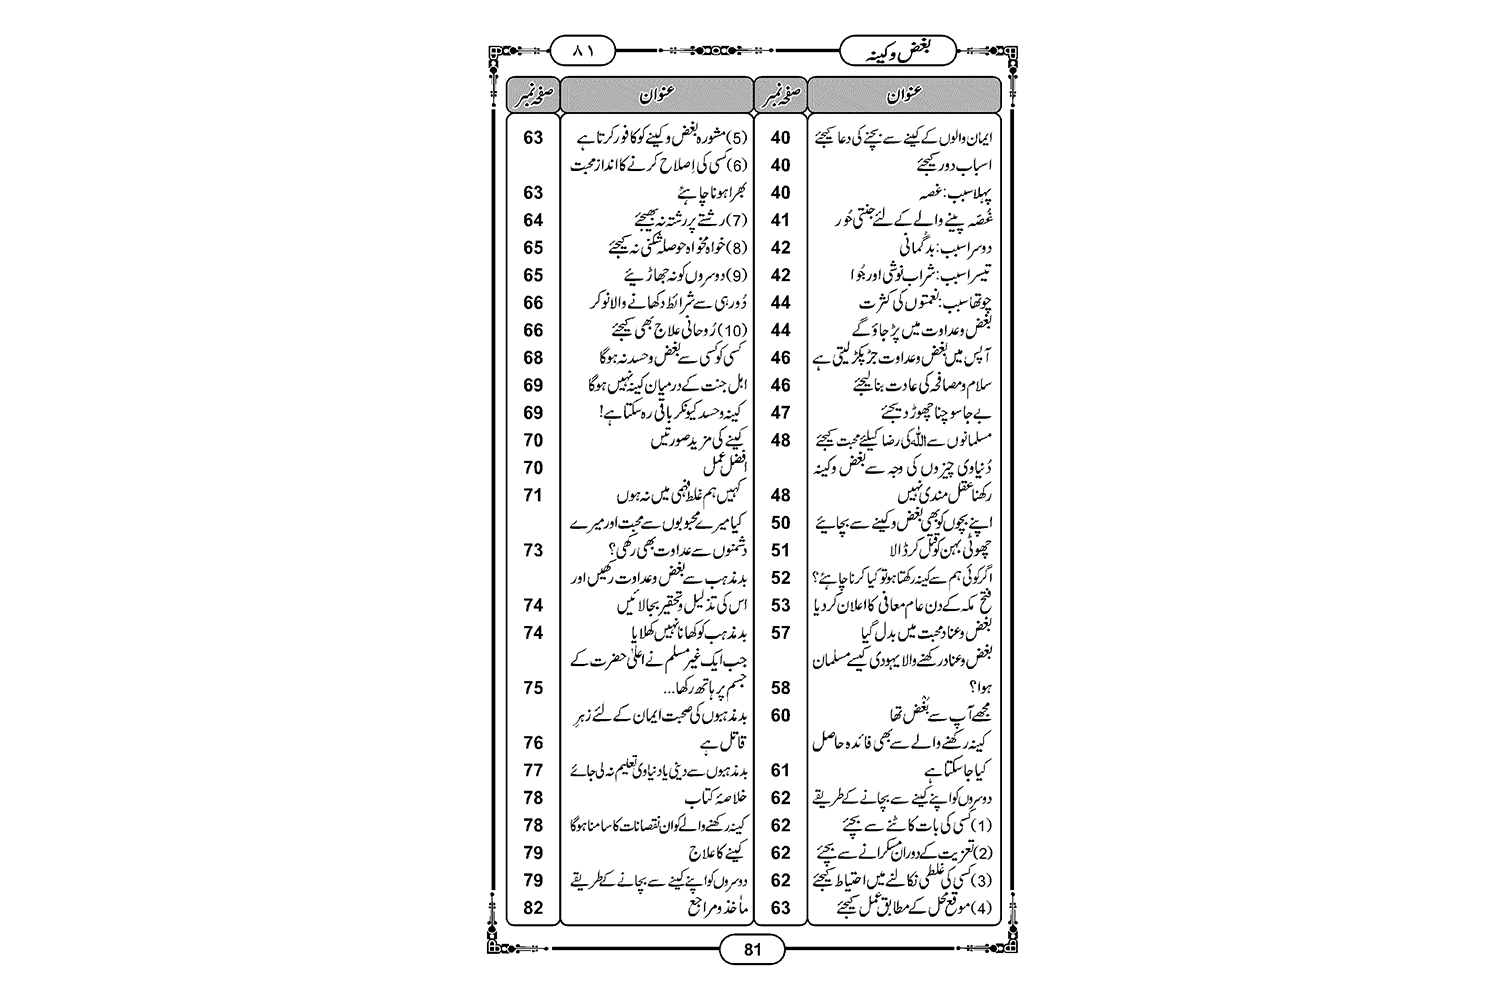 بغض وکینہ
۸۱
عنوان صفحہ نمبر عنوان صفحہ نمبر
ایمان والوں کے کینے سے بچنے کی دعا کیجئے 40
اسباب دور کیجئے 40
پہلا سبب: غصہ 40
غُصّہ پینے والے کے لئے جنتی حُور 41
دوسرا سبب: بدگُمانی 42
تیسرا سبب: شراب نوشی اور جُوا 42
چوتھا سبب: نعمتوں کی کثرت 44
بُغض وعداوت میں پڑ جاؤ گے 44
آپس میں بغض وعداوت جڑ پکڑ لیتی ہے 46
سلام ومصافحہ کی عادت بنا لیجئے 46
بے جا سوچنا چھوڑ دیجئے 47
مسلمانوں سے اللہ کی رضا کیلئے محبت کیجئے 48
دُنیاوی چیزوں کی وجہ سے بغض وکینہ
رکھنا عقل مندی نہیں 48
اپنے بچوں کو بھی بغض وکینے سے بچائیے 50
چھوٹی بہن کو قتل کر ڈالا 51
اگر کوئی ہم سے کینہ رکھتا ہو تو کیا کرنا چاہئے؟ 52
فتح مکہ کے دن عام معافی کا اعلان کر دیا 53
بغض وعناد محبت میں بدل گیا 57
بغض وعناد رکھنے والا یہودی کیسے مسلمان
ہوا؟ 58
مجھے آپ سے بُغْض تھا 60
کینہ رکھنے والے سے بھی فائدہ حاصل
کیا جا سکتا ہے 61
دوسروں کو اپنے کینے سے بچانے کے طریقے 62
(1) کسی کی بات کاٹنے سے بچئے 62
(2) تعزیت کے دوران مسکرانے سے بچئے 62
(3) کسی کی غلطی نکالنے میں احتیاط کیجئے 62
(4) موقع محل کے مطابق عمل کیجئے 63
(5) مشورہ بغض وکینے کو کافور کرتا ہے 63
(6) کسی کی اِصلاح کرنے کا انداز محبت
بھرا ہونا چاہئے 63
(7) رشتے پر رشتہ نہ بھیجئے 64
(8) خواہ مخواہ حوصلہ شکنی نہ کیجئے 65
(9) دوسروں کو نہ جھاڑیئے 65
دُور ہی سے شرائط دکھانے والا نوکر 66
(10) رُوحانی علاج بھی کیجئے 66
کسی کو کسی سے بغض وحسد نہ ہوگا 68
اہل جنت کے درمیان کینہ نہیں ہوگا 69
کینہ وحسد کیونکر باقی رہ سکتا ہے! 69
کینے کی مزید صورتیں 70
افضل عمل 70
کہیں ہم غلط فہمی میں نہ ہوں 71
کیا میرے محبوبوں سے محبت اور میرے
دشمنوں سے عداوت بھی رکھی؟ 73
بدمذہب سے بغض وعداوت رکھیں اور
اس کی تذلیل وتحقیر بجا لائیں 74
بدمذہب کو کھانا نہیں کھلایا 74
جب ایک غیر مسلم نے اعلیٰ حضرت کے
جسم پر ہاتھ رکھا... 75
بدمذہبوں کی صحبت ایمان کے لئے زہرِ
قاتل ہے 76
بدمذہبوں سے دینی یا دنیاوی تعلیم نہ لی جائے 77
خلاصۂ کتاب 78
کینہ رکھنے والے کو ان نقصانات کا سامنا ہوگا 78
کینے کا علاج 79
دوسروں کو اپنے کینے سے بچانے کے طریقے 79
مآخذ ومراجع 82
81